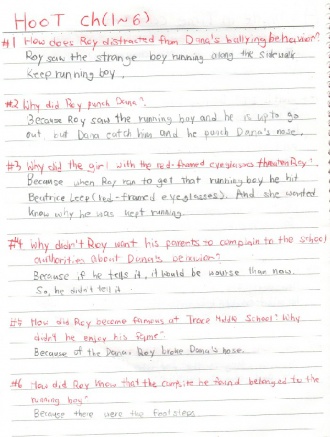 HOOT Ch(1~6)
#1 How does Roy distracted from Dana's bullying behavior?
Roy saw the strange boy running along the sidewalk
Keep running boy.
#2 Why did Roy punch Dana?
Because Roy saw the running boy and he is up to go
out but Dana catch him and he punch Dana's nose.
#3 Why did the girl with the red-framed eyeglasses threaten Roy?
Because when Roy ran to get that running boy he hit
Beatrice Leep (red-framed eyeglasses). And she wanted
know why he was kept running.
#4 Why didn't Roy want his parents to complain to the school
authorities about Dana's behavior?
Because if he tells it, it would be worse than now.
So, he didn't tell it.
#5 How did Roy become famous at Trace Middle School? Why
didn't he enjoy his fame?
Because of the Dana. Roy broke Dana's nose.
#6 How did Roy know that the campsite he found belonged to the
running boy?
Because there were the footsteps